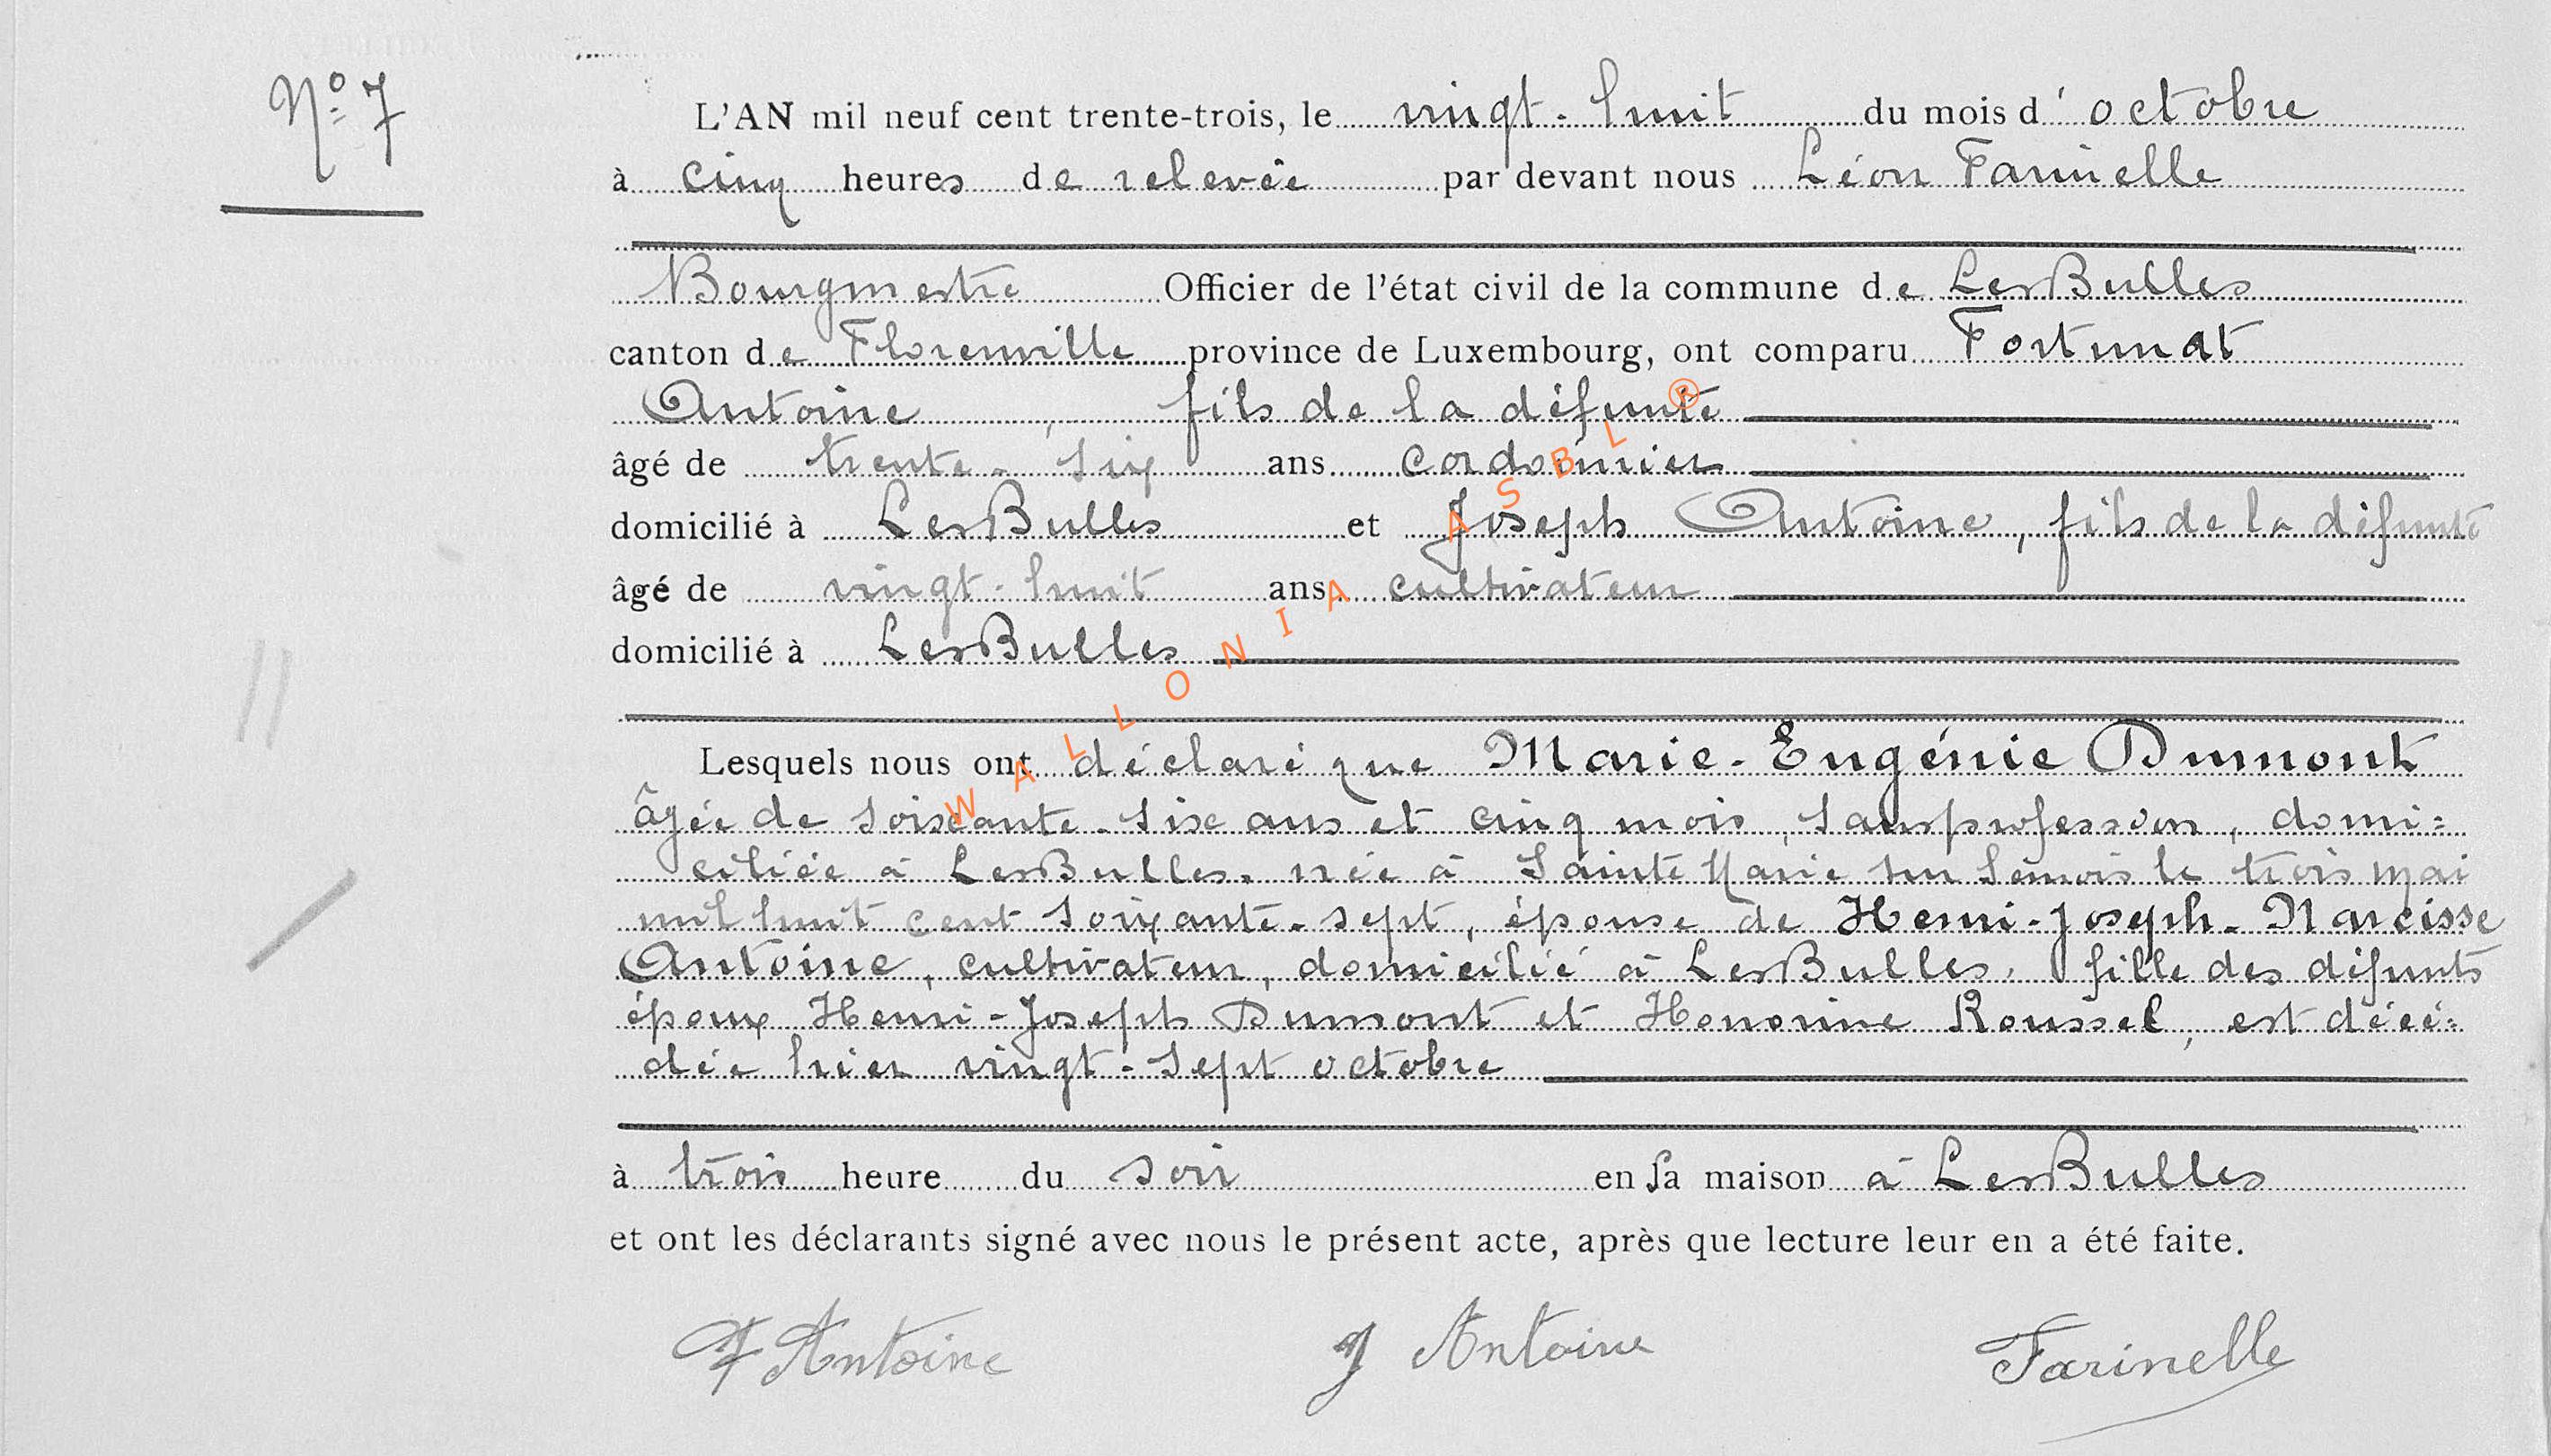 Nº 7
L'AN mil neuf cent trente-trois, le vingt-huit du mois d'octobre
à cinq heures de relevée par devant nous Léon Farinelle
Bourgmestre Officier de l'état civil de la commune de LesBulles
canton de Florenville province de Luxembourg, ont comparu Fortunat
Antoine, fils de la défunte
âgé de trente-six ans cordonnier
domicilié à LesBulles et Joseph Antoine, fils de la défunte
âgé de vingt-huit ans cultivateur
domicilié à LesBulles
Lesquels nous ont déclaré que Marie-Eugénie Dumont
âgée de soixante-six ans et cinq mois, sans profession, domi=
ciliée à LesBulles, née à Sainte Marie sur Semois le trois mai
mil huit cent soixante-sept, épouse de Henri-Joseph-Narcisse
Antoine, cultivateur, domicilié à LesBulles, fille des défunts
époux Henri-Joseph Dumont et Honorine Roussel, est décé=
dée hier vingt-sept octobre
à trois heure du soir en sa maison à LesBulles
et ont les déclarants signé avec nous le présent acte, après que lecture leur en a été faite.
F Antoine J Antoine Farinelle
WALLONIA ASBL ®